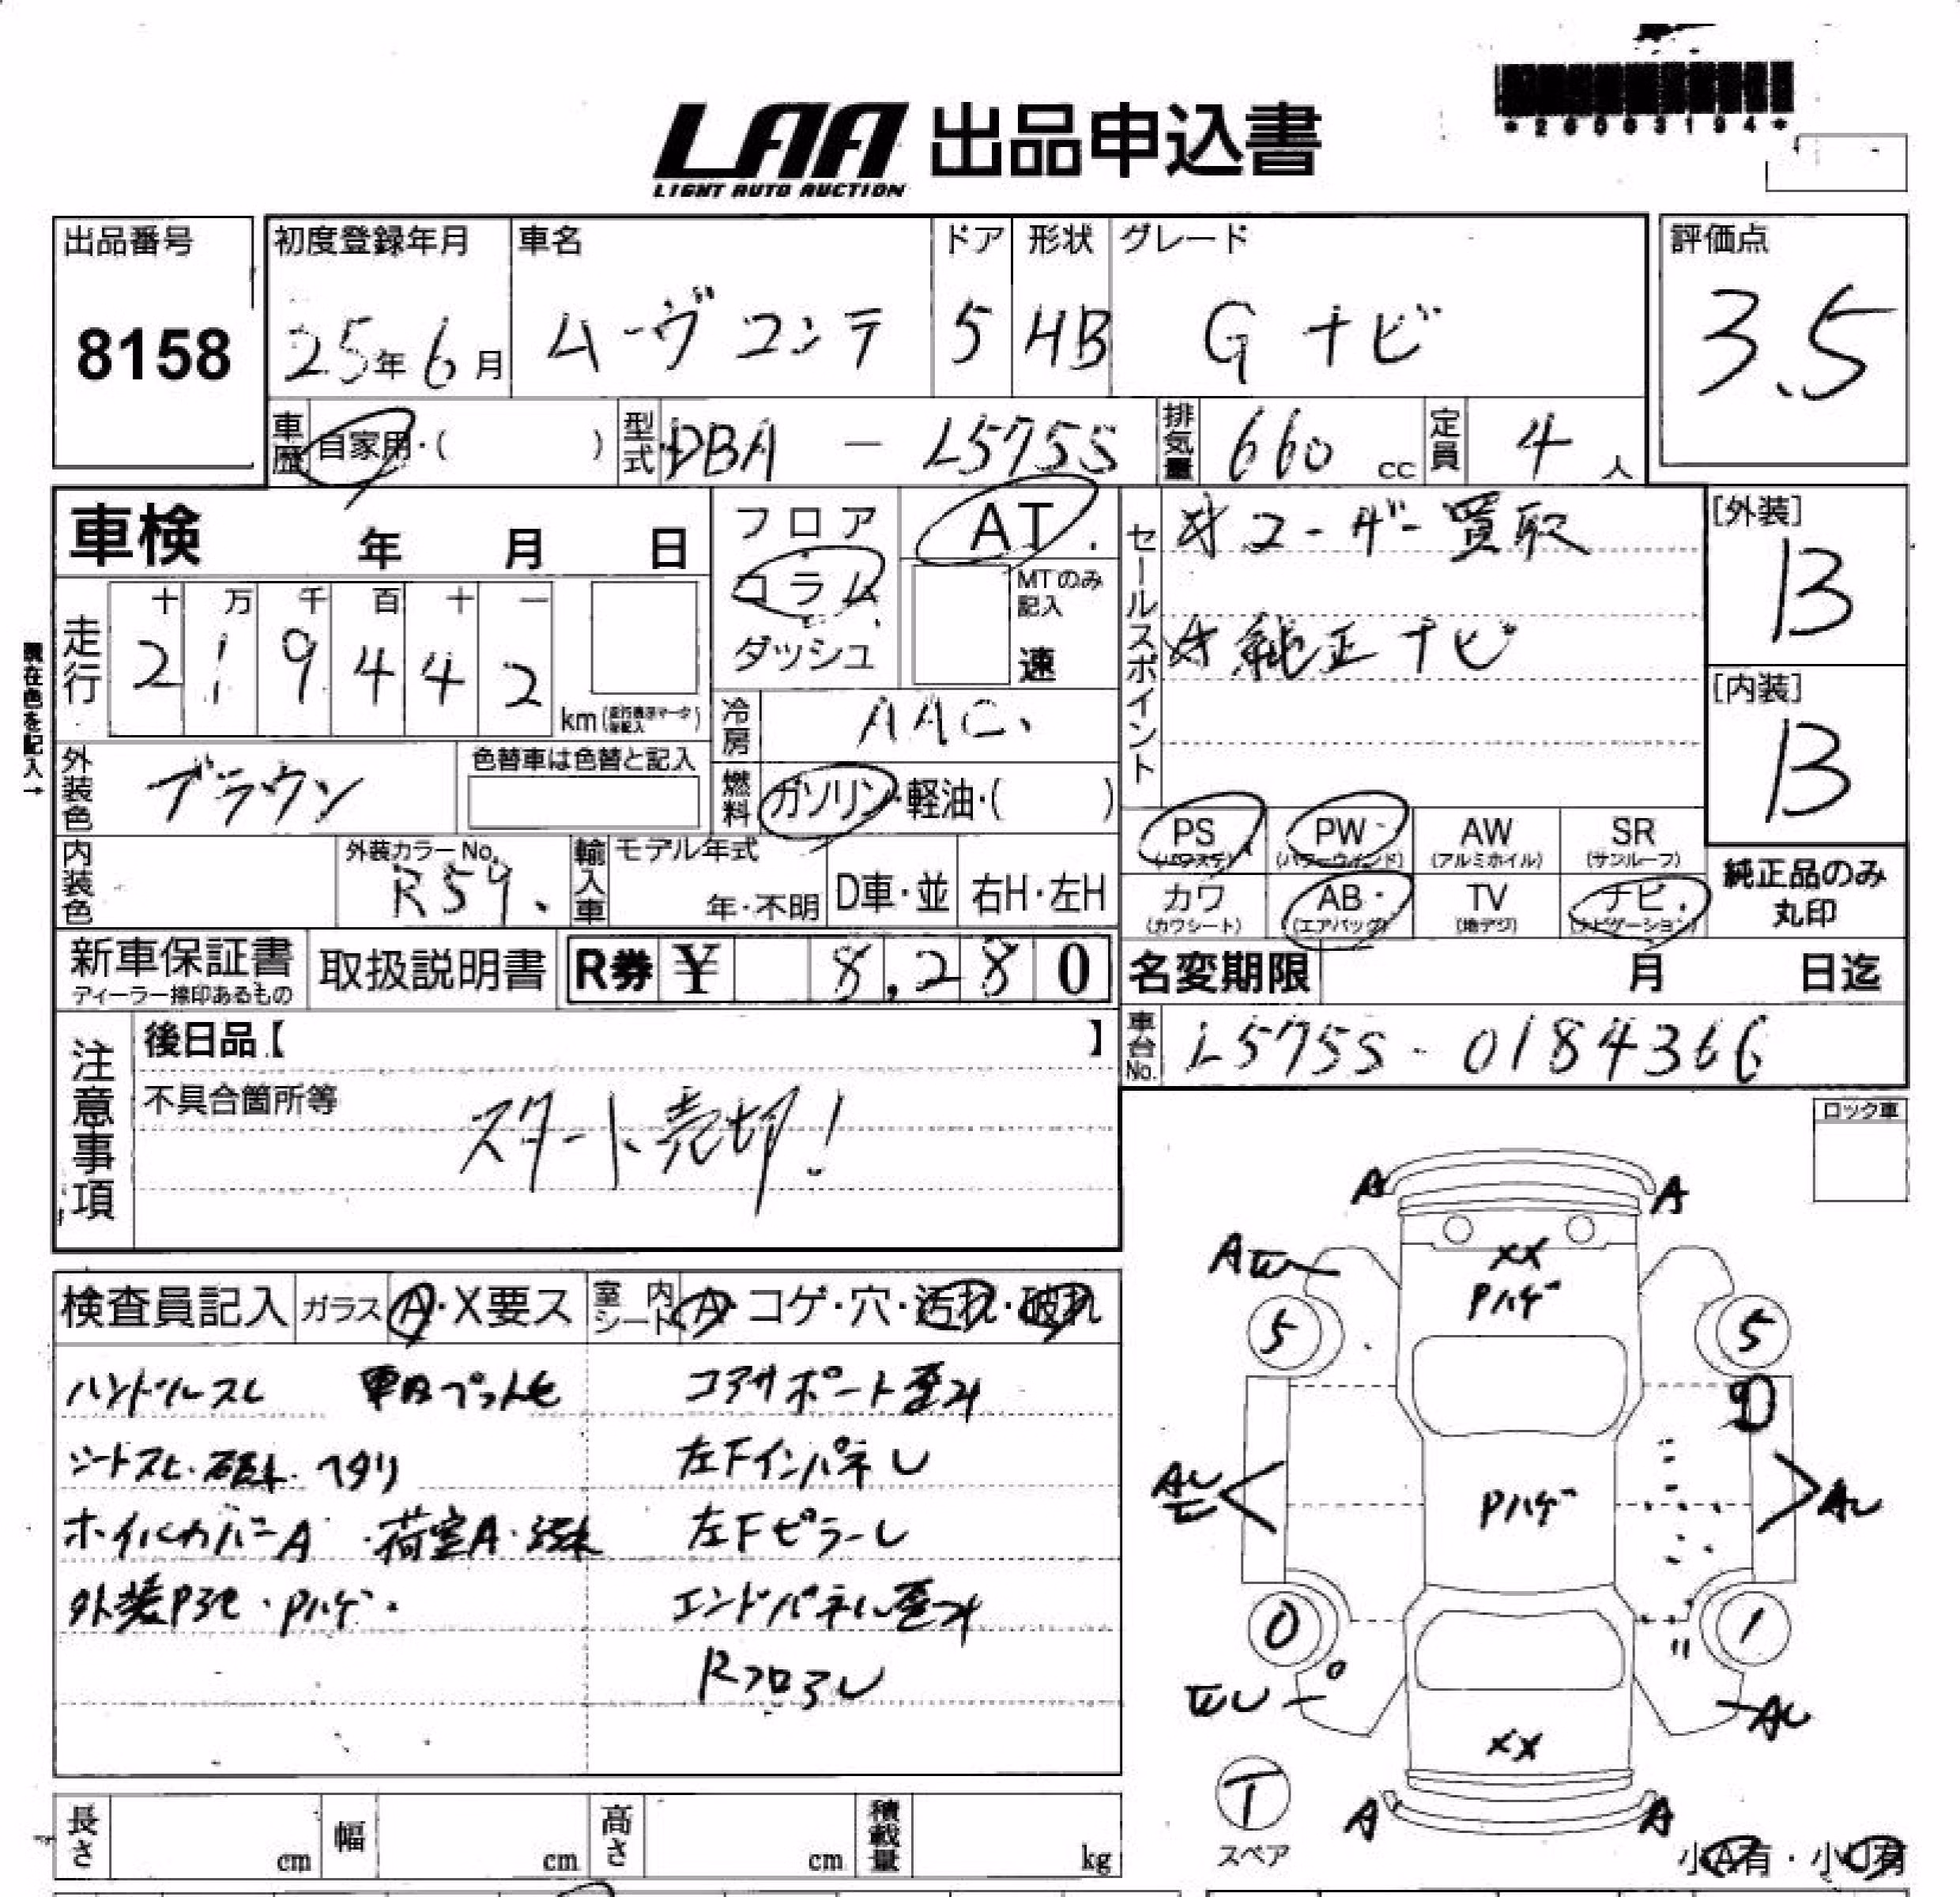 *26063194*
LAA 出品申込書
LIGHT AUTO AUCTION
出品番号 初度登録年月 車名 ドア 形状 グレード 評価点
8158 25年6月 ムーヴコンテ 5 HB G ナビ 3.5
車歴 自家用・( ) 型式 DBA - L575S 排気量 660 cc 定員 4 人
車検 年 月 日 フロア AT セールスポイント ＊ユーザー買取 [外装]
コラム MTのみ記入 B
走行 十 万 千 百 十 一
2 1 9 4 4 2 km ダッシュ 速 ＊純正ナビ [内装]
現在色を記入→
冷房 AAC B
外装色 ブラウン 色替車は色替と記入 燃料 ガソリン・軽油・( )
PS (パワステ) PW (パワーウィンド) AW (アルミホイル) SR (サンルーフ)
内装色 外装カラーNo. R59 輸入車 モデル年式 年・不明 D車・並 右H・左H
カワ (カワシート) AB (エアバッグ) TV (地デジ) ナビ (ナビゲーション) 純正品のみ丸印
新車保証書 取扱説明書 R券 ¥ 8,280 名変期限 月 日迄
ディーラー捺印あるもの
注意事項 後日品【 】 車台No. L575S-0184366
不具合箇所等
スタート売切!
ロック車
検査員記入 ガラス A・X要ス 室内シート A・コゲ・穴・汚れ・破れ
ハンドルスレ コアサポート歪ミ
左FインパネU
ホイルカバーA・荷室A・汚れ 左FピラーU
Pハゲ・ エンドパネル歪ミ
RフロアU
A A
A XX
Pハゲ
5 5
AU Pハゲ AU
0 1
AU
XX
T
スペア
A A
小A有・小U有
長さ cm 幅 cm 高さ cm 積載量 kg